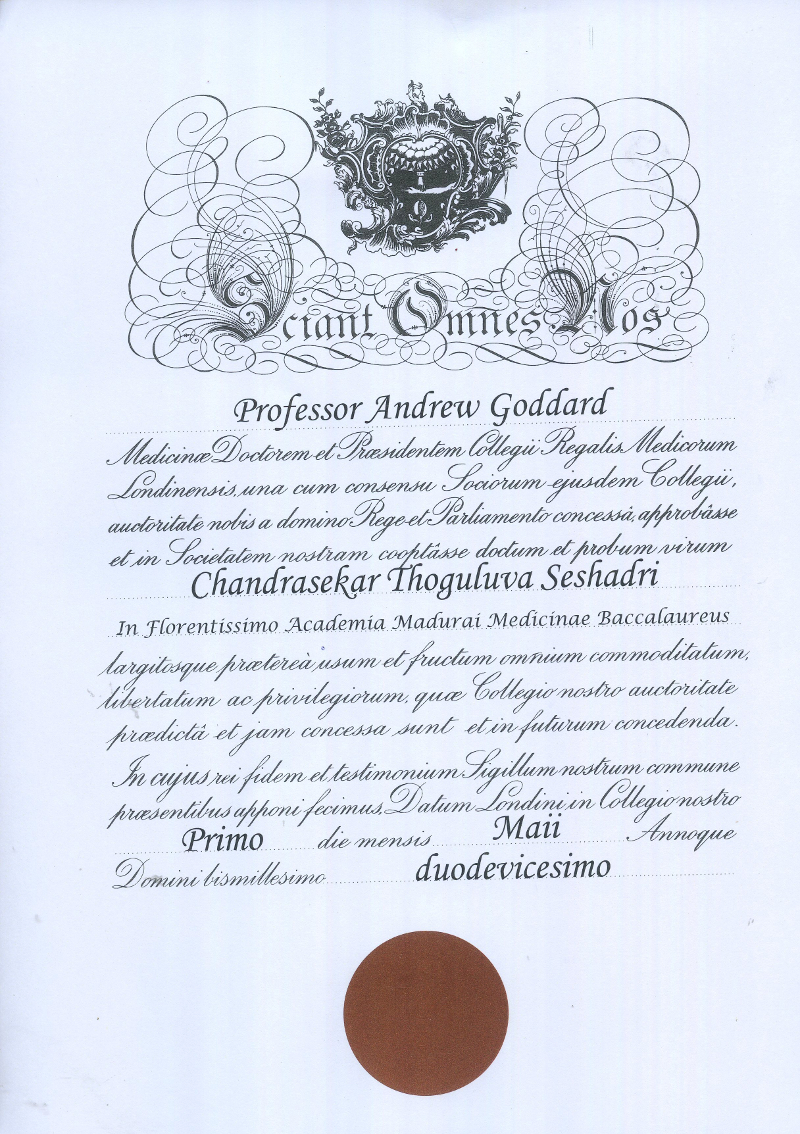 Sciant Omnes Nos
Professor Andrew Goddard
Medicinæ Doctorem et Præsidentem Collegii Regalis Medicorum
Londinensis, una cum consensu Sociorum ejusdem Collegii,
auctoritate nobis a domino Rege et Parliamento concessâ, approbâsse
et in Societatem nostram cooptâsse doctum et probum virum
Chandrasekar Thoguluva Seshadri
In Florentissimo Academia Madurai Medicinae Baccalaureus
largitosque prætereà usum et fructum omnium commoditatum,
libertatum ac privilegiorum, quæ Collegio nostro auctoritate
prædictâ et jam concessa sunt et in futurum concedenda.
In cujus rei fidem et testimonium Sigillum nostrum commune
præsentibus apponi fecimus. Datum Londini in Collegio nostro
Primo die mensis Maii Annoque
Domini bismillesimo duodevicesimo